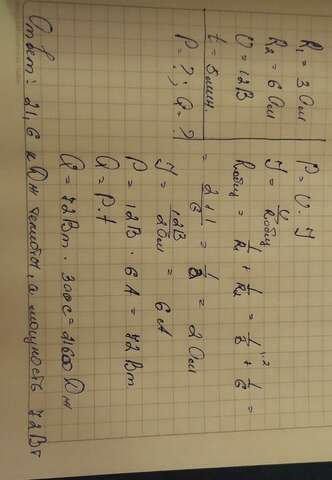 R₁ = 3 Ом
R₂ = 6 Ом
U = 12 В
t = 5 мин.
P = ? ; Q = ?
P = U · I
I = U/Rобщ
Rобщ = 1/R₁ + 1/R₂ = 1/3 ·² + 1/6 =
= 2+1/6 = 1/2 = 2 Ом
I = 12В/2Ом = 6 А
P = 12В · 6 А = 72 Вт
Q = P · t
Q = 72Вт · 300с = 21600 Дж
Ответ: 21,6 кДж теплоты, а мощность 72Вт